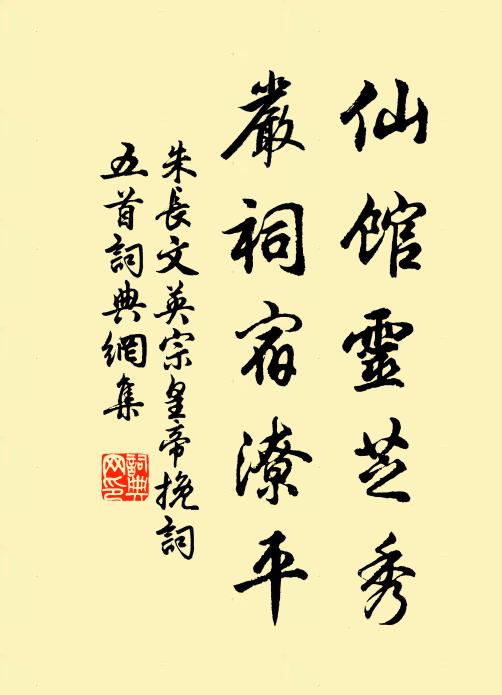 仙館靈芝秀
嚴祠宿潦平
朱長文英宗皇帝挽詞
五首詞典網集
詞典
网印